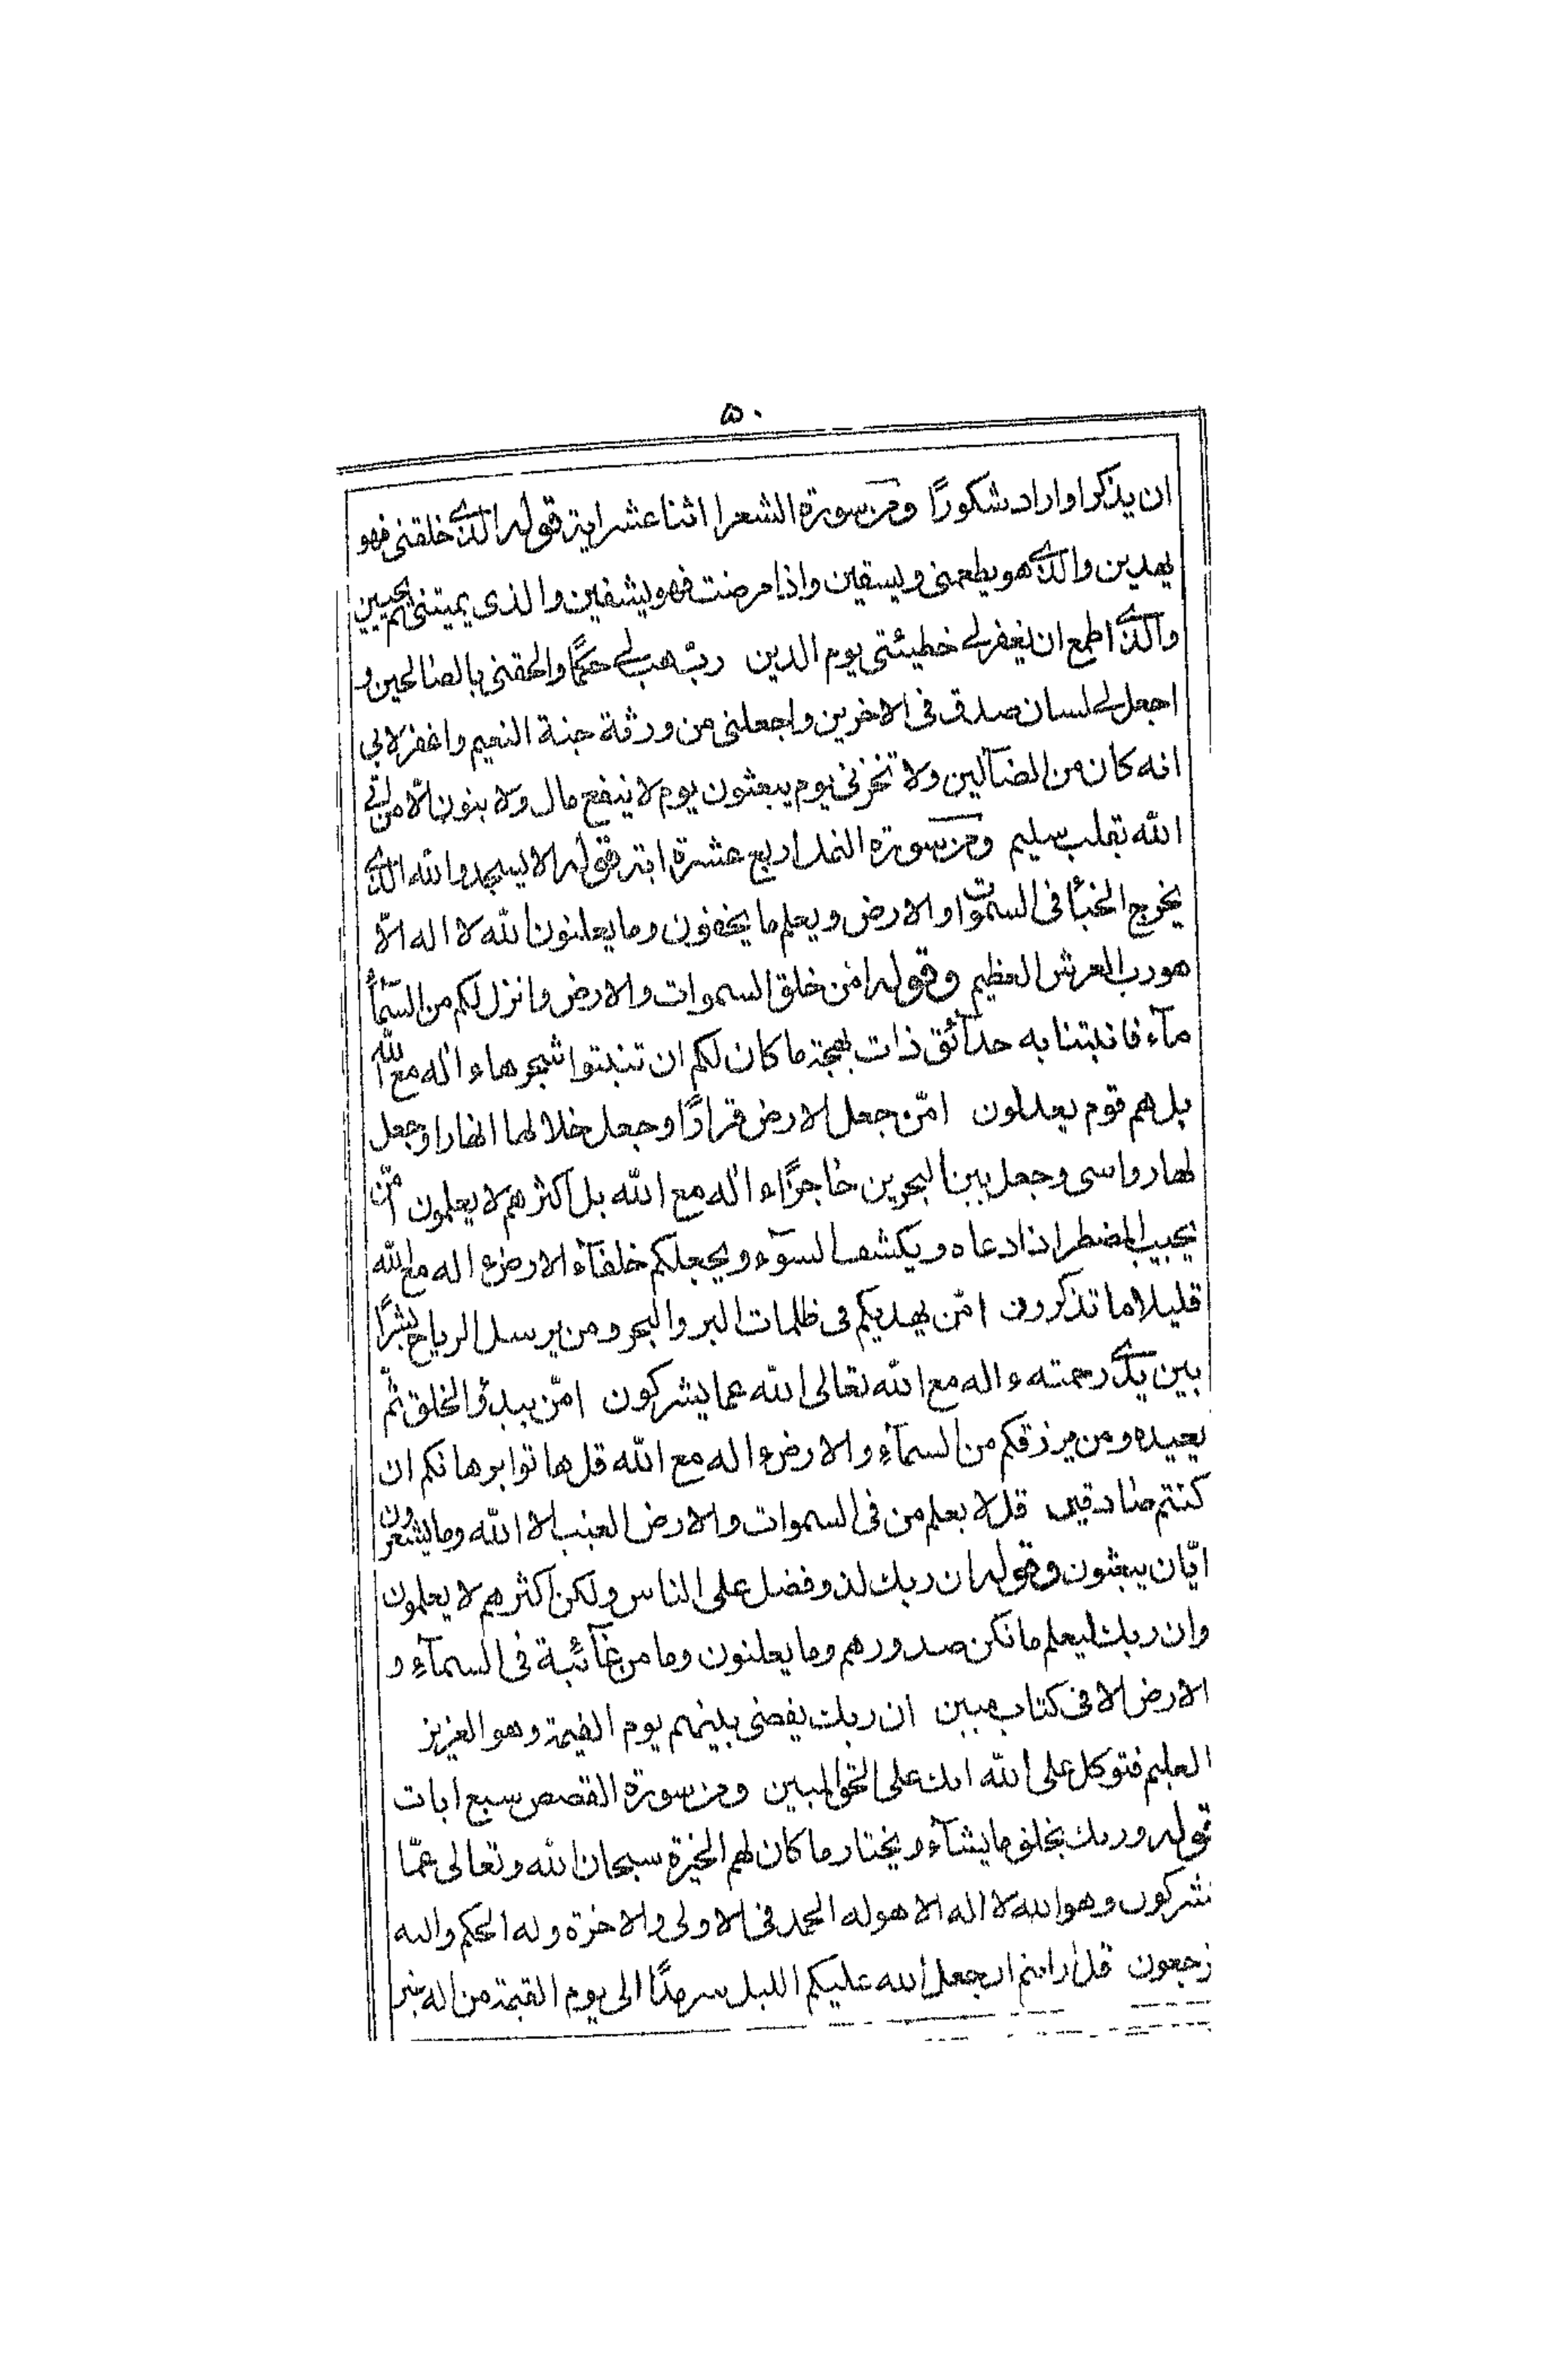 ۵۰
ان يذكر او اراد شكورًا ومن سورة الشعرا اثنا عشر اية قوله الذى خلقنى فهو
يهدين والذى هو يطعمنى ويسقين واذا مرضت فهو يشفين والذى يميتنى ثم يحيين
والذى اطمع ان يغفر لى خطيئتى يوم الدين ربّ هب لى حكمًا والحقنى بالصالحين و
اجعل لى لسان صدق فى الاخرين واجعلنى من ورثة جنة النعيم واغفر لابى
انه كان من الضآلين ولا تخزنى يوم يبعثون يوم لا ينفع مال ولا بنون الّا من اتى
الله بقلب سليم ومن سورة النمل اربع عشرة اية قوله الا يسجدوا لله الذى
يخرج الخبأ فى السموات والارض ويعلم ما يخفون وما يعلنون الله لا اله الّا
هو رب العرش العظيم وقوله امّن خلق السموات والارض وانزل لكم من السمآء
مآء فانبتنا به حدآئق ذات بهجة ما كان لكم ان تنبتوا شجرها ءاله مع الله
بل هم قوم يعدلون امّن جعل الارض قرارًا وجعل خلالها انهارا وجعل
لها رواسى وجعل بين البحرين حاجزًا ءاله مع الله بل اكثرهم لا يعلمون امّن
يجيب المضطر اذا دعاه ويكشف السوٓء ويجعلكم خلفآء الارض ءاله مع الله
قليلا ما تذكرون امّن يهديكم فى ظلمات البر والبحر ومن يرسل الرياح بشرًا
بين يدى رحمته ءاله مع الله تعالى الله عما يشركون امّن يبدؤ الخلق ثمّ
يعيده ومن يرزقكم من السمآء والارض ءاله مع الله قل هاتوا برهانكم ان
كنتم صادقين قل لا يعلم من فى السموات والارض الغيب الا الله وما يشعرون
ايّان يبعثون وقوله ان ربك لذو فضل على الناس ولكن اكثرهم لا يعلمون
وان ربك ليعلم ما تكن صدورهم وما يعلنون وما من غآئبة فى السمآء و
الارض الا فى كتاب مبين ان ربك يقضى بينهم يوم القيمة وهو العزيز
العليم فتوكل على الله انك على الحق المبين ومن سورة القصص سبع ايات
قوله وربك يخلق ما يشآء ويختار ما كان لهم الخيرة سبحان الله وتعالى عمّا
يشركون وهو الله لا اله الا هو له الحمد فى الاولى والاخرة وله الحكم واليه
ترجعون قل ارايتم ان جعل الله عليكم الليل سرمدًا الى يوم القيمة من اله غير